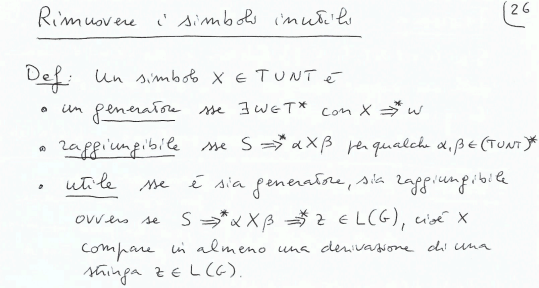 Rimuovere i simboli inutili
26
Def: Un simbolo X ∈ T ∪ NT è
• un generatore sse ∃ w ∈ T* con X ⇒* w
• raggiungibile sse S ⇒* αXβ per qualche α, β ∈ (T ∪ NT)*
• utile sse è sia generatore, sia raggiungibile
ovvero se S ⇒* αXβ ⇒* z ∈ L(G), cioè X
compare in almeno una derivazione di una
stringa z ∈ L(G).